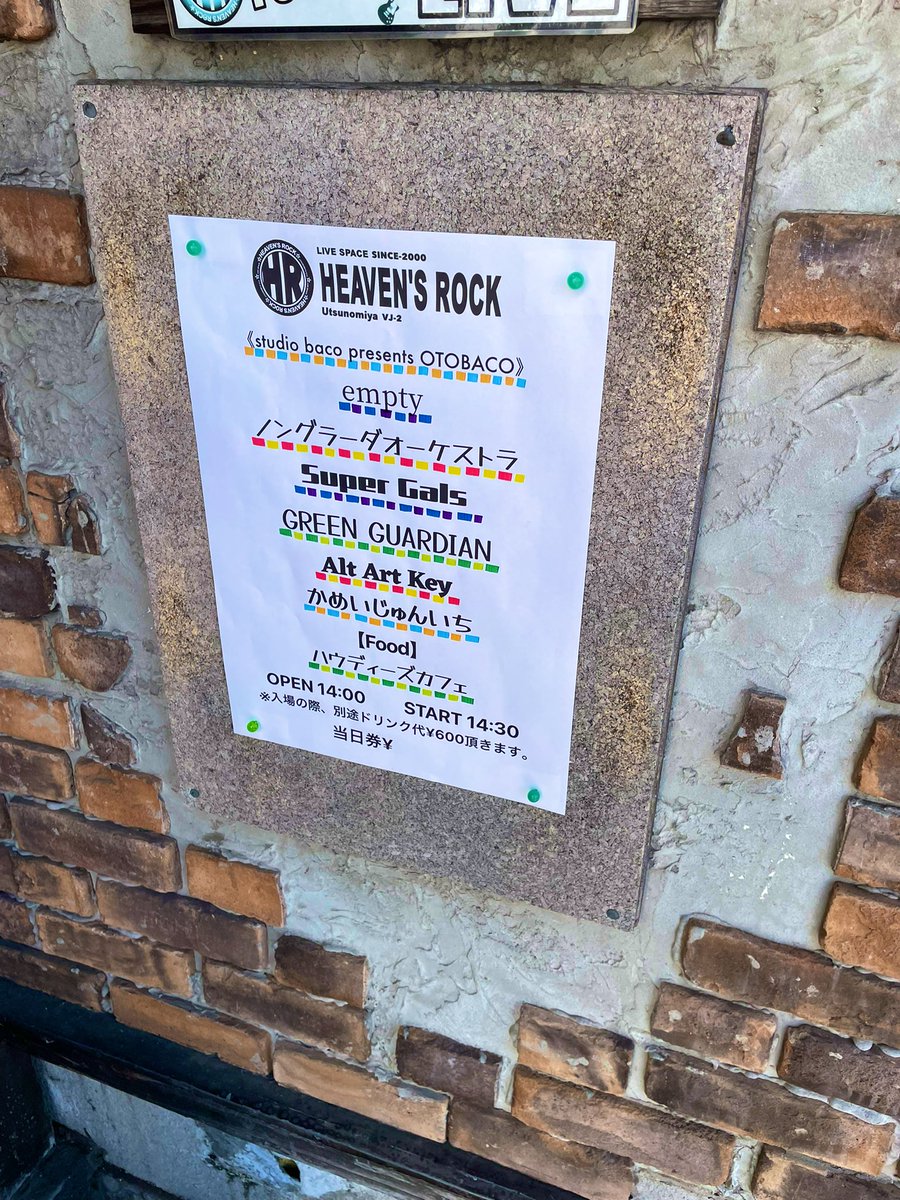 LIVE
HEAVEN'S ROCK
HR
LIVE SPACE SINCE-2000
HEAVEN'S ROCK
Utsunomiya VJ-2
《studio baco presents OTOBACO》
empty
ノングラーダオーケストラ
Super Gals
GREEN GUARDIAN
Alt Art Key
かめいじゅんいち
【Food】
ハウディーズカフェ
OPEN 14:00 START 14:30
※入場の際、別途ドリンク代¥600頂きます。
当日券¥